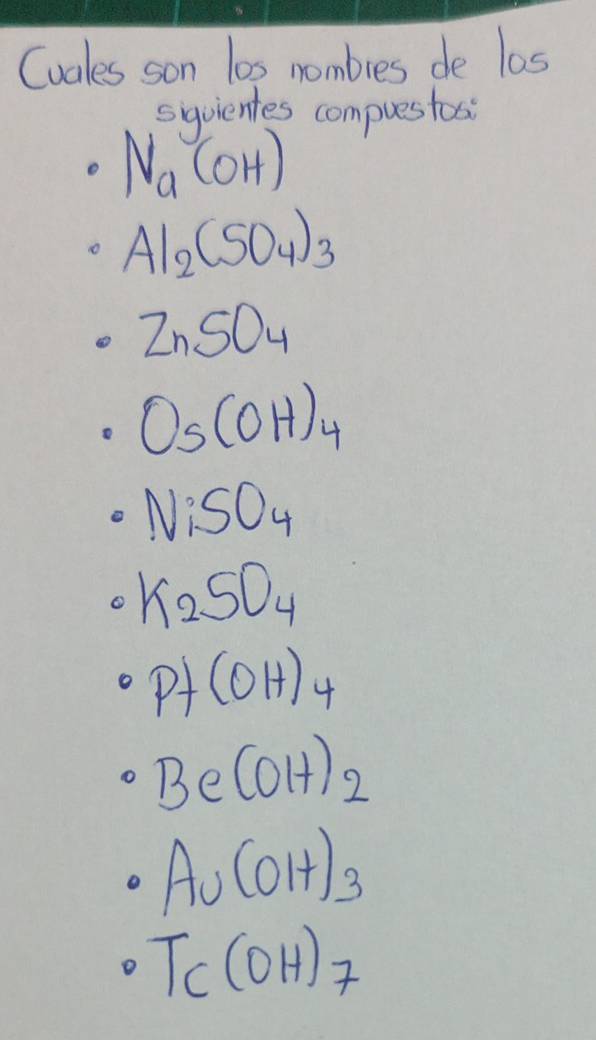 Cuales son los nombres de los
siguientes compuestos:
• Na(OH)
• Al2(SO4)3
• ZnSO4
• Os(OH)4
• NiSO4
• K2SO4
• Pt(OH)4
• Be(OH)2
• Au(OH)3
• Tc(OH)7